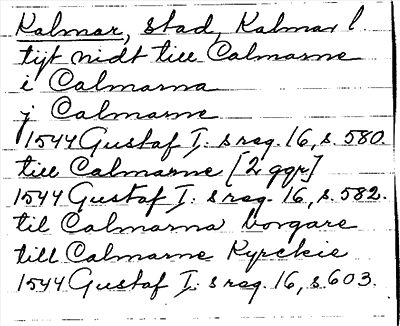 Kalmar, stad, Kalmar l
tijt nidt till Calmarne
i Calmarna
j Calmarne
1544 Gustaf I:s reg. 16, s. 580.
till Calmarne [2 ggr]
1544 Gustaf I:s reg. 16, s. 582.
til Calmarna borgare
till Calmarne Kyrckie
1544 Gustaf I:s reg. 16, s. 603.